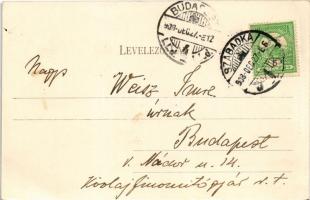 BUDAPEST
LEVELEZŐ
SZABADKA
Nagys
Weisz Imre
úrnak
Budapest
V. Nádor u. 14.
Kőolajfinomítógyár r. t.